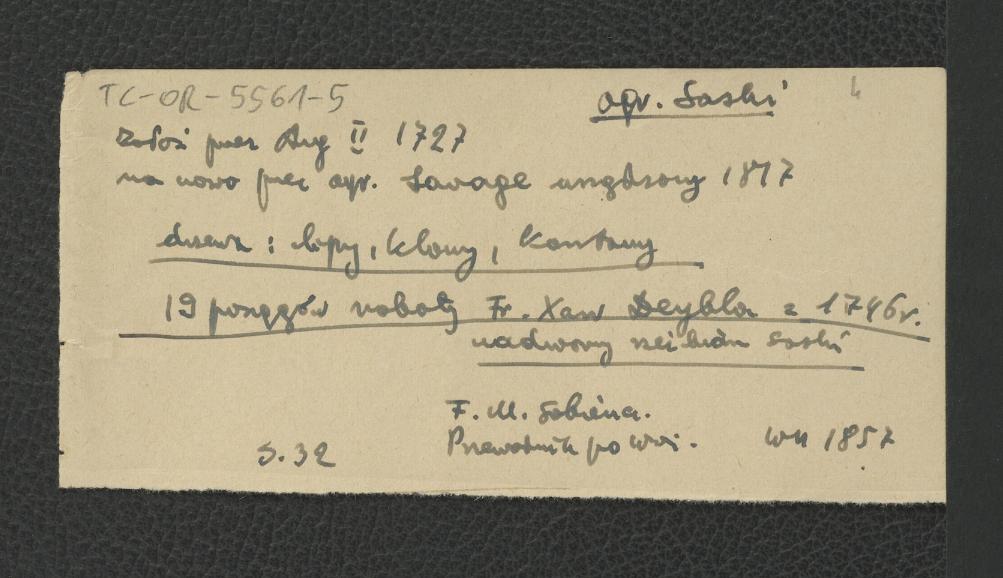 TC-OR-5561-5
ogr. Saski
4
założ przez Aug II 1727
na nowo przez ogr. Savage urządzony 1817
drzewa : lipy, klony, kasztany
19 posągów roboty Fr. Xaw Deybla z 1746r.
nadworny rzeźbiarz saski
F. M. Sobieszcz.
Przewodnik po Wwi. Wwa 1857
S. 32